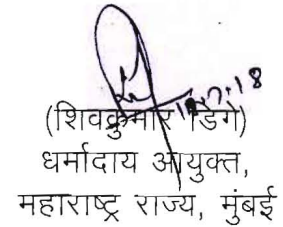 (शिवकुमार डिगे)
धर्मादाय आयुक्त,
महाराष्ट्र राज्य, मुंबई